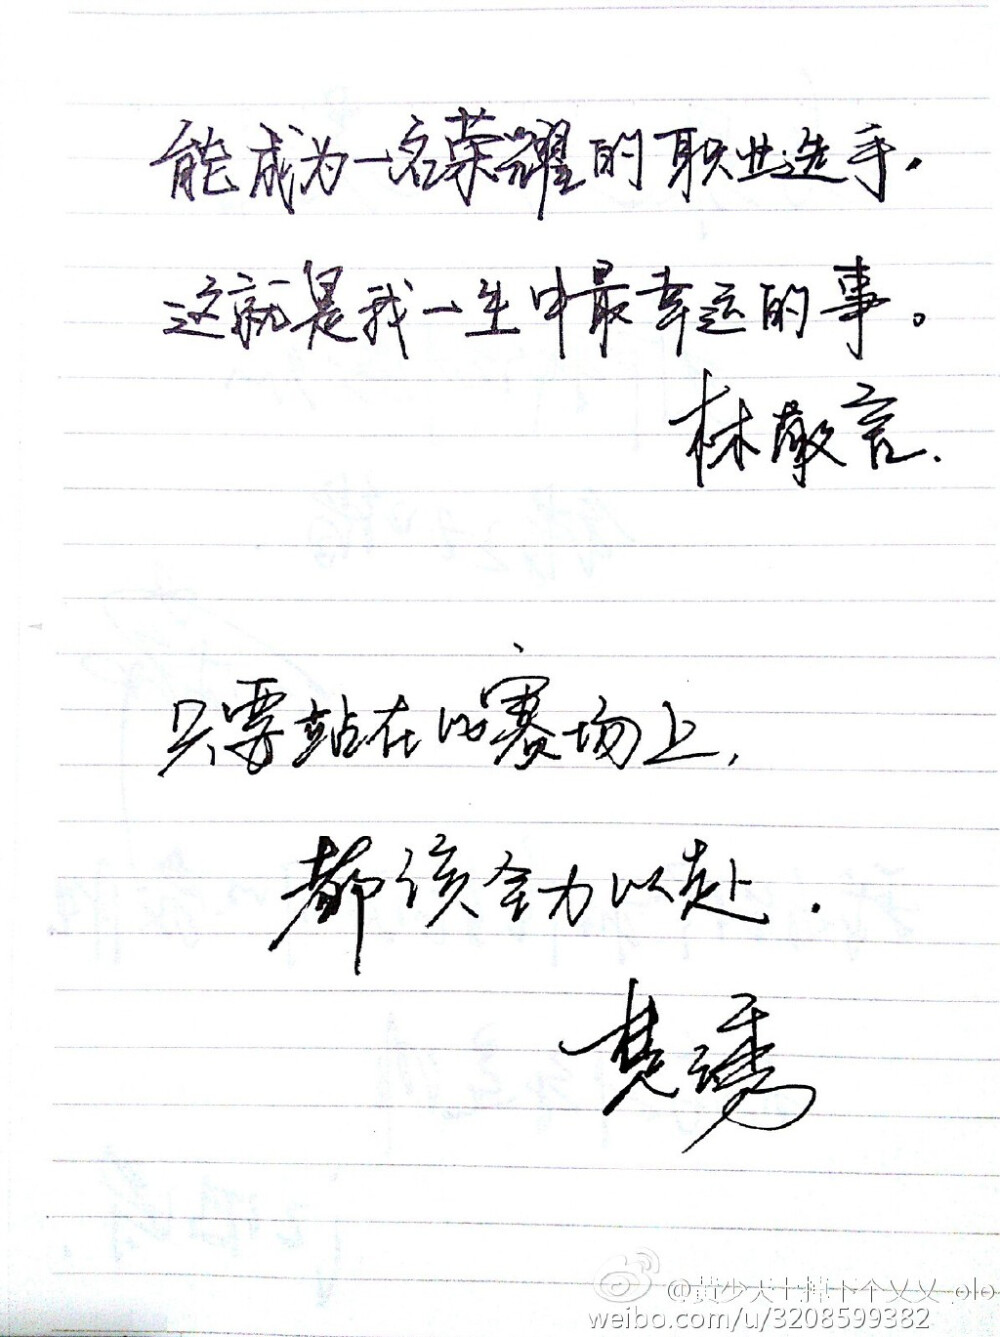 能成为一名荣耀的职业选手.
这就是我一生中最幸运的事。
林敬言.
只要站在比赛场上,
都该全力以赴.
楚云秀
weibo.com/u/3208599382